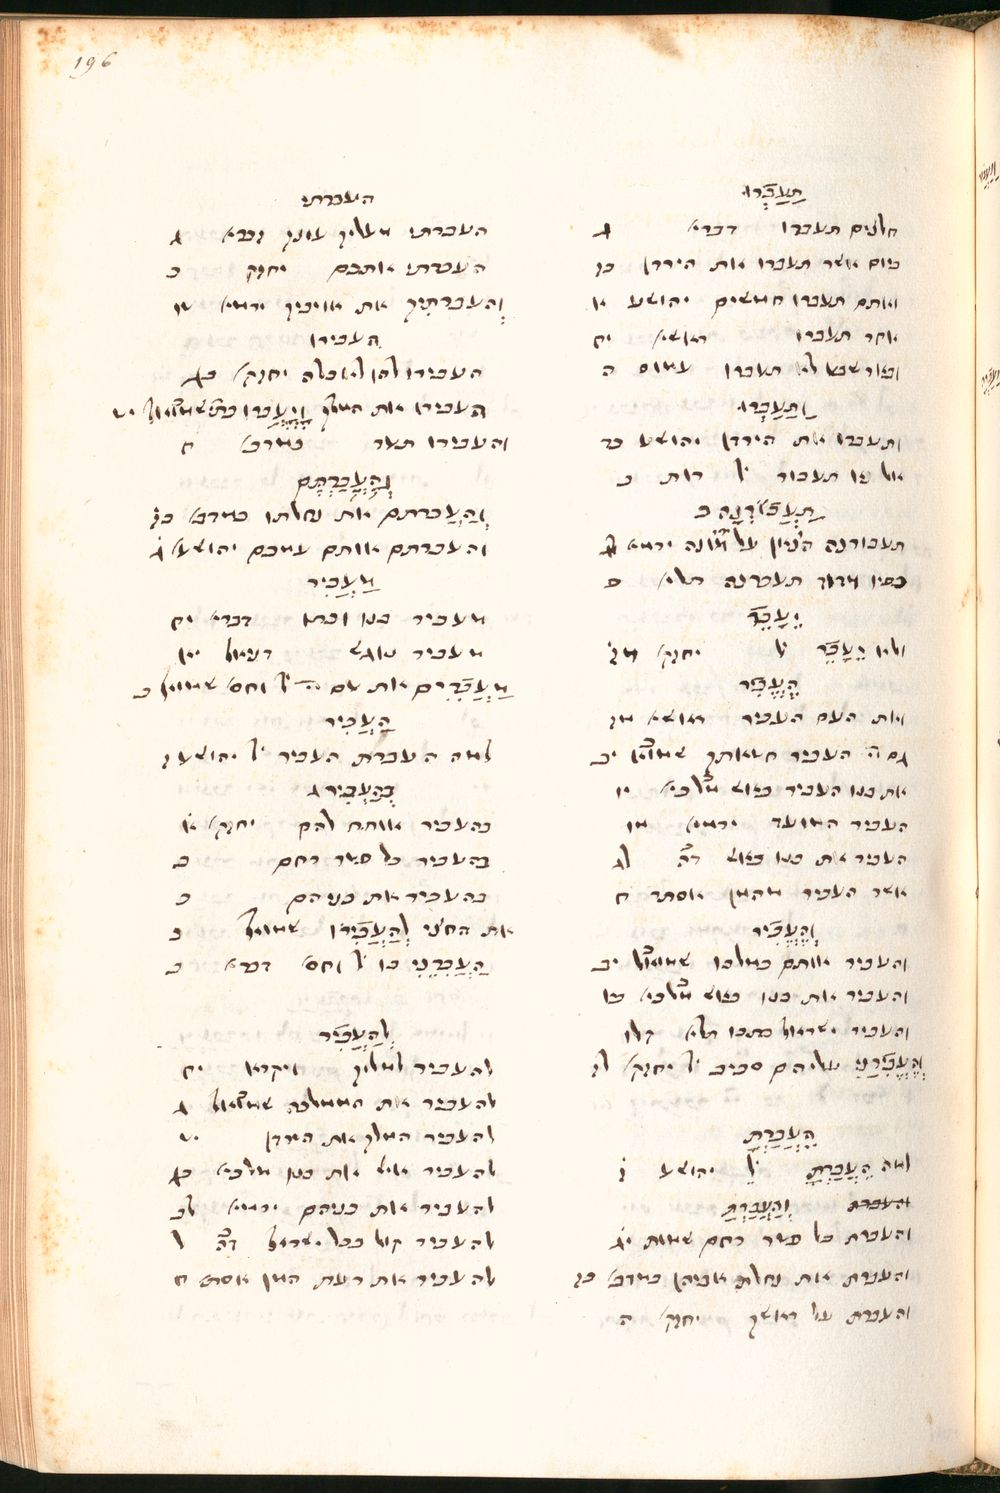 196
תַעַבְרוּ
חלוצים תעברו דברא ג
ביום אשר תעברו את הירדן כז
ואתם תעברו חמשים יהושע א
אחר תעברו יח
ובאר שבע לא תעברו עמוס ה
וַתַעַבְרוּ
ותעברו את הירדן יהושע כד
תעבור ל רות ב
תעבורנה הצאן על מונה ירמיא לג
כפיו מדוד תעברנה תליא
ולא ל יחזקא מז
הֶעֱבִיר
ואת העם העביר מז
גם ה העביר חטאתך יב
את בנו העביר באש מלכיא יו
העביר המועד ירמיא מו
העביר את בנו באש לג
אשר העביר מהמן אסתר ח
וְהֶעֱבִיר
והעביר אותם במלבן יב
והעביר את בנו באש מלכיא
והעביר ישראל בתכו תליא קלו
וְהֶעֱבִירַנִי עליהם סביב ל יחזקא לז
הֵעֲבַרְתָּ
למה הֵעֲבַרְתָּ ל יהושע ז
העברת וְהַעֲבַרְתָּ
והעברת כל פטר רחם שמות יג
והעברת את נחלת אביהן במדב כז
והעברת על ראשך יחזק ה
העברתי
העברתי מעליך עונך זכרא ג
העברתי אותכם יחזק כ
וְהעברתִיך את אויביך ירמיא טו
העבירו
העבירו להן לאכלה יחזק כג
העבירו את המלך יט
והעבירו תער במדב ח
וְהַעֲבַרְתֶּם
וְהַעברתם את נחלתו במדב כז
והעברתם אותם עמכם יהושע ד
מַעֲבִיר
מעביר בנו ובתו דברא יח
מעביר נוגש דניאל יא
מַעֲבִירִים את עם ה ל וחס שמואל ב
הַעֲבִיר
למה העברת העביר ל יהושע ז
בְּהַעֲבִיר ג
בהעביר אותם להם יחזק
בהעביר כל פטר רחם כ
בהעביר את בניהם כ
את החצי לְהַעֲבִירוֹ שמואל כ
הַעֲבִרֵנִי בו ל וחס דברא ב
לְהַעֲבִיר
להעביר למלך ויקרא יח
להעביר את הממלכה שמואל ג
להעביר המלך את הירדן יט
להעביר איש את בנו מלכיא כג
להעביר את בניהם ירמיא לב
להעביר קול בכל ישראל ל
להעביר את רעת המן אסת ח